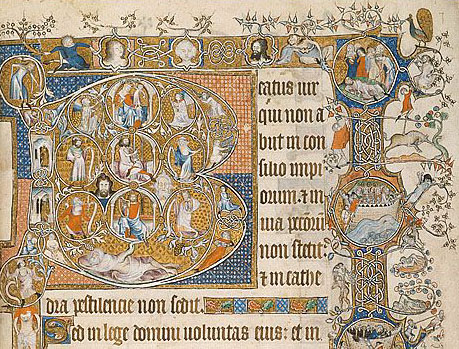 eatus uir
qui non a
biit in con
silio impi
orum ⁊ in
uia
non stetit
⁊ in cathe
dra pestilencie non sedit.
Sed in lege domini uoluntas eius: et in